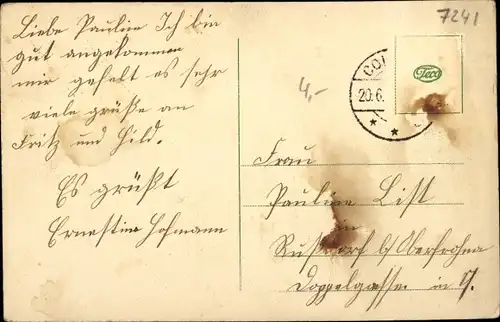 7241
Liebe Pauline Ich bin
gut angekommen
mir gefelt es sehr
viele grüße an
Fritz und Hild.
Es grüßt
Ernestine Hofmann
4,-
Teco
20.6.
Frau
Pauline List
in
Rußdorf b/ Oberfrohna
Doppelgasse